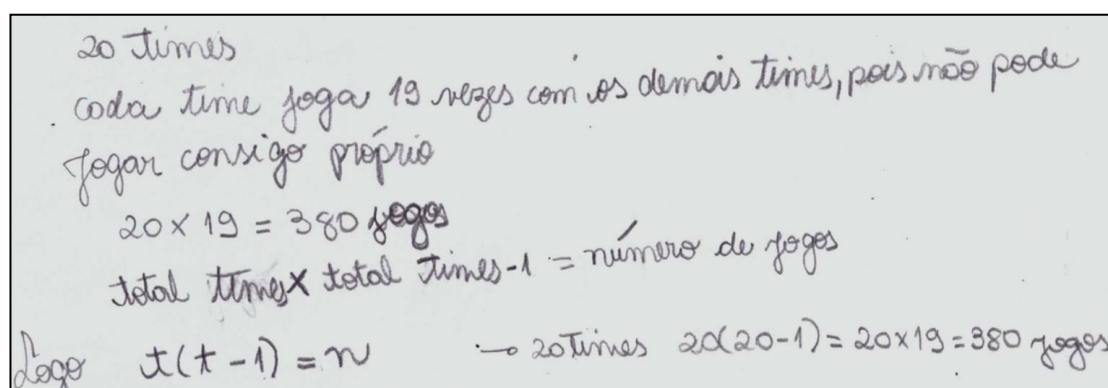 20 times
cada time joga 19 vezes com os demais times, pois não pode
jogar consigo próprio
20 x 19 = 380 jogos
total times x total times - 1 = número de jogos
Logo t(t - 1) = n → 20 times 20(20-1) = 20 x 19 = 380 jogos